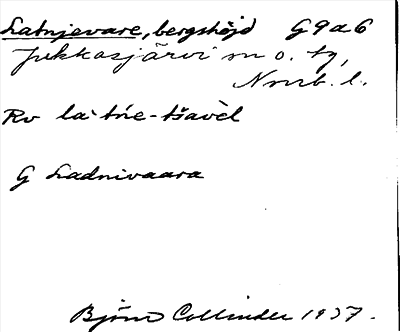 Latnjevare, bergshöjd G9a6
Jukkasjärvi sn o. tg,
Nrrb. l.
Rv la·tńe-tšavèl
G Ladnivaara
Björn Collinder 1937.